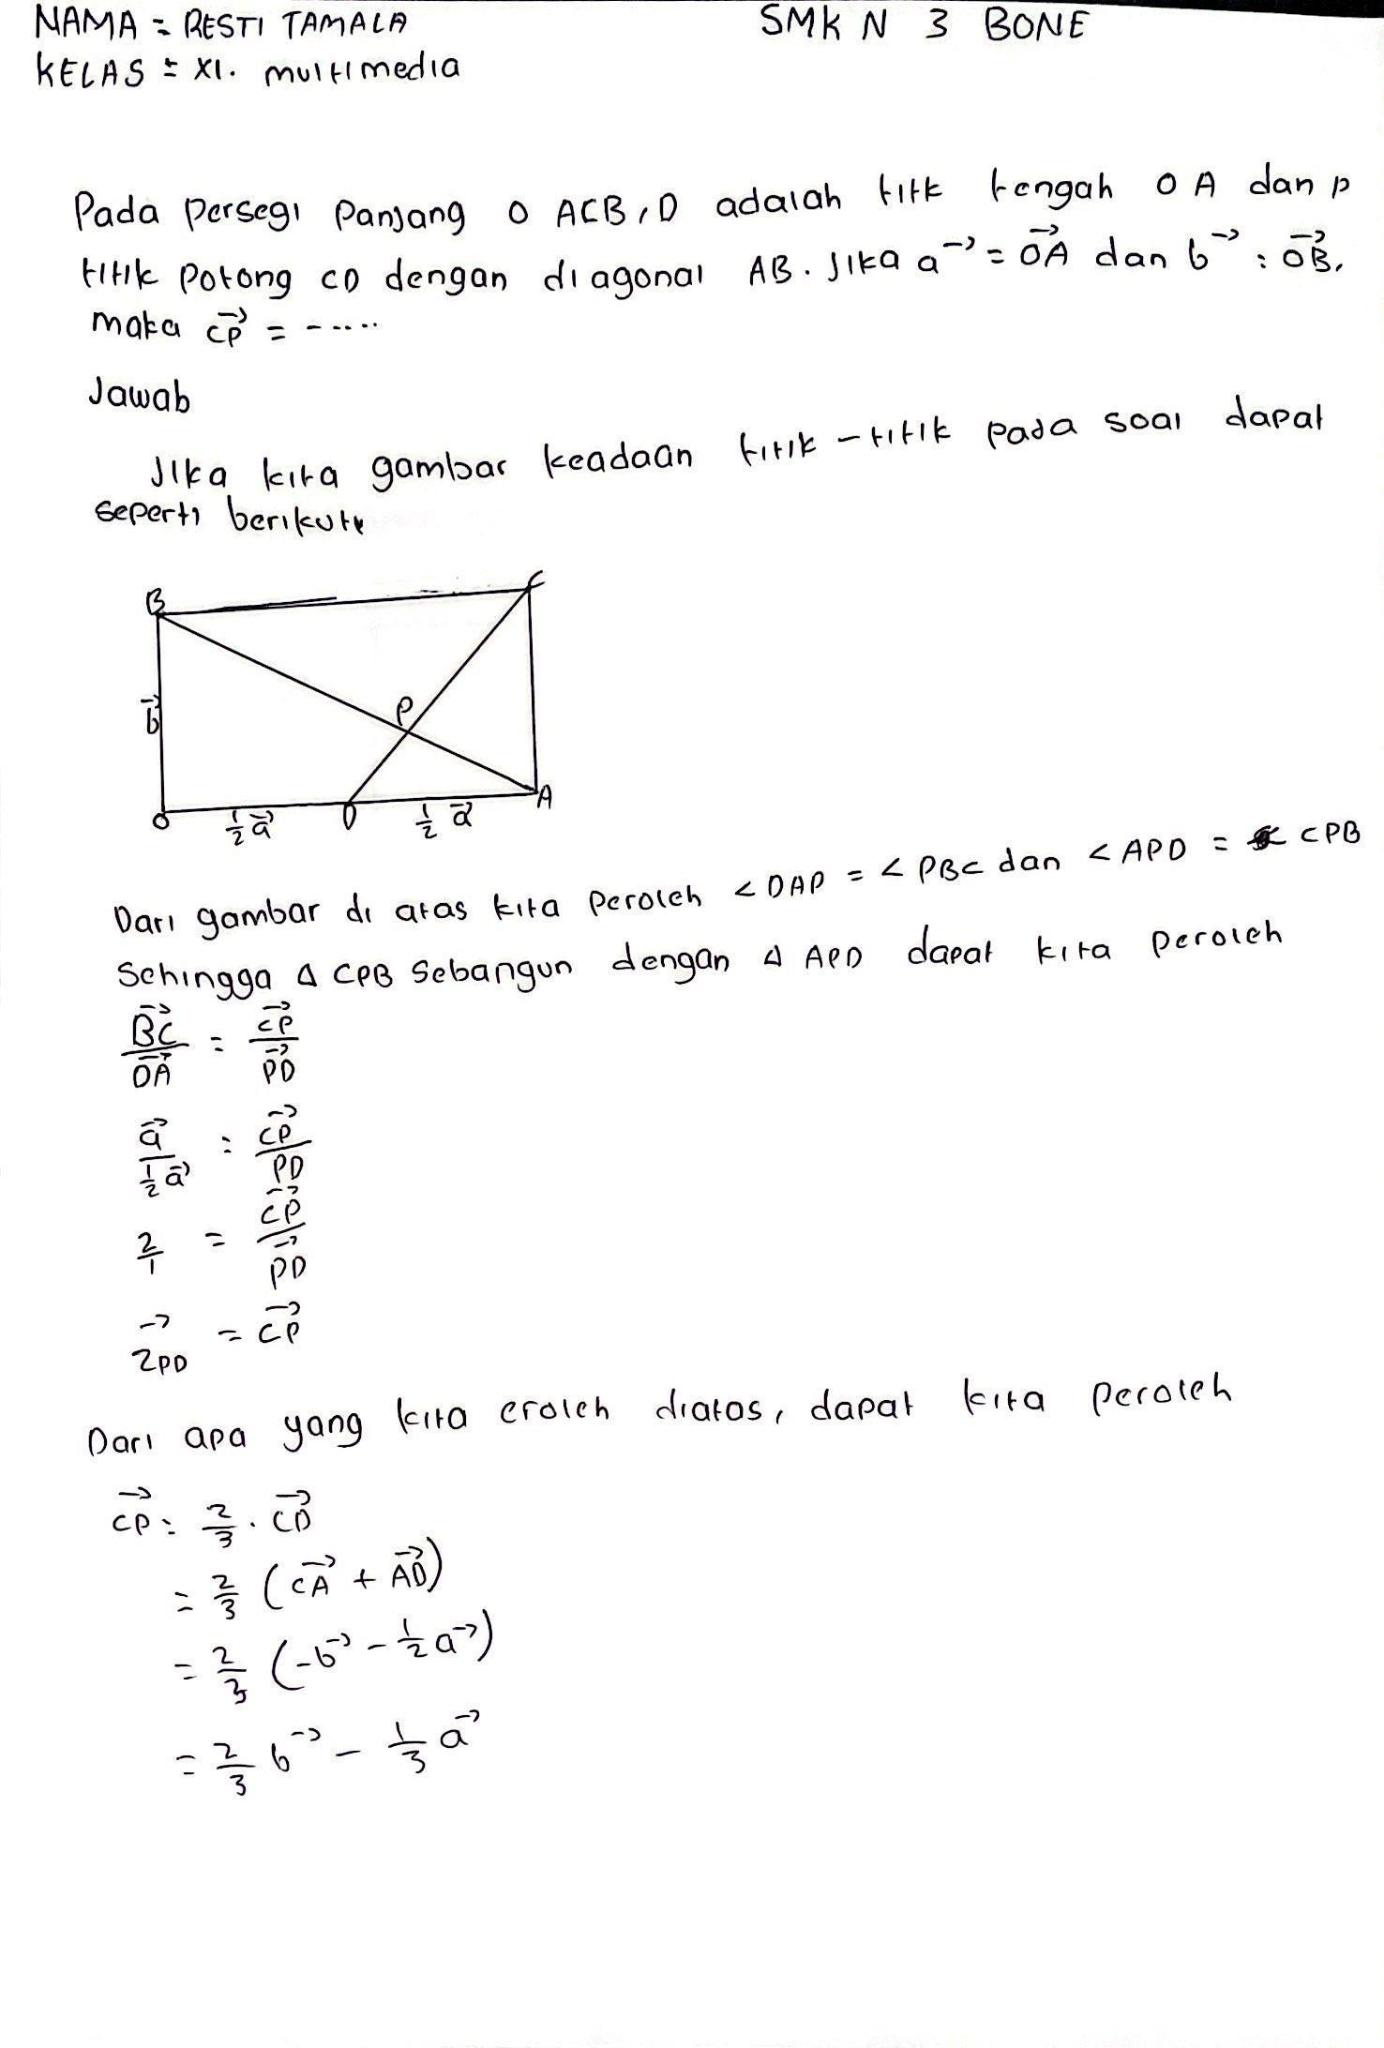 NAMA = RESTI TAMALA SMK N 3 BONE
KELAS = XI. multimedia
Pada Persegi Panjang O ACB, D adalah titk tengah OA dan P
titik Potong CD dengan diagonal AB. Jika a→ = OA→ dan b→ : OB→,
maka CP→ = -.....
Jawab
Jika kita gambar keadaan titik - titik pada soal dapat
seperti berikut
B C
b→ P
O ½ a→ D ½ a→ A
Dari gambar di atas kita Peroleh < DAP = < PBC dan < APD = CPB
Sehingga Δ CPB Sebangun dengan Δ APD dapat kita peroleh
BC→/DA→ = CP→/PD→
a→/½a→ : CP→/PD
2/1 = CP→/PD→
2PD→ = CP→
Dari apa yang kita eroleh diatas, dapat kita peroleh
CP→ = 2/3 . CD→
= 2/3 (CA→ + AD→)
= 2/3 (-b→ - ½ a→)
= 2/3 b→ - 1/3 a→